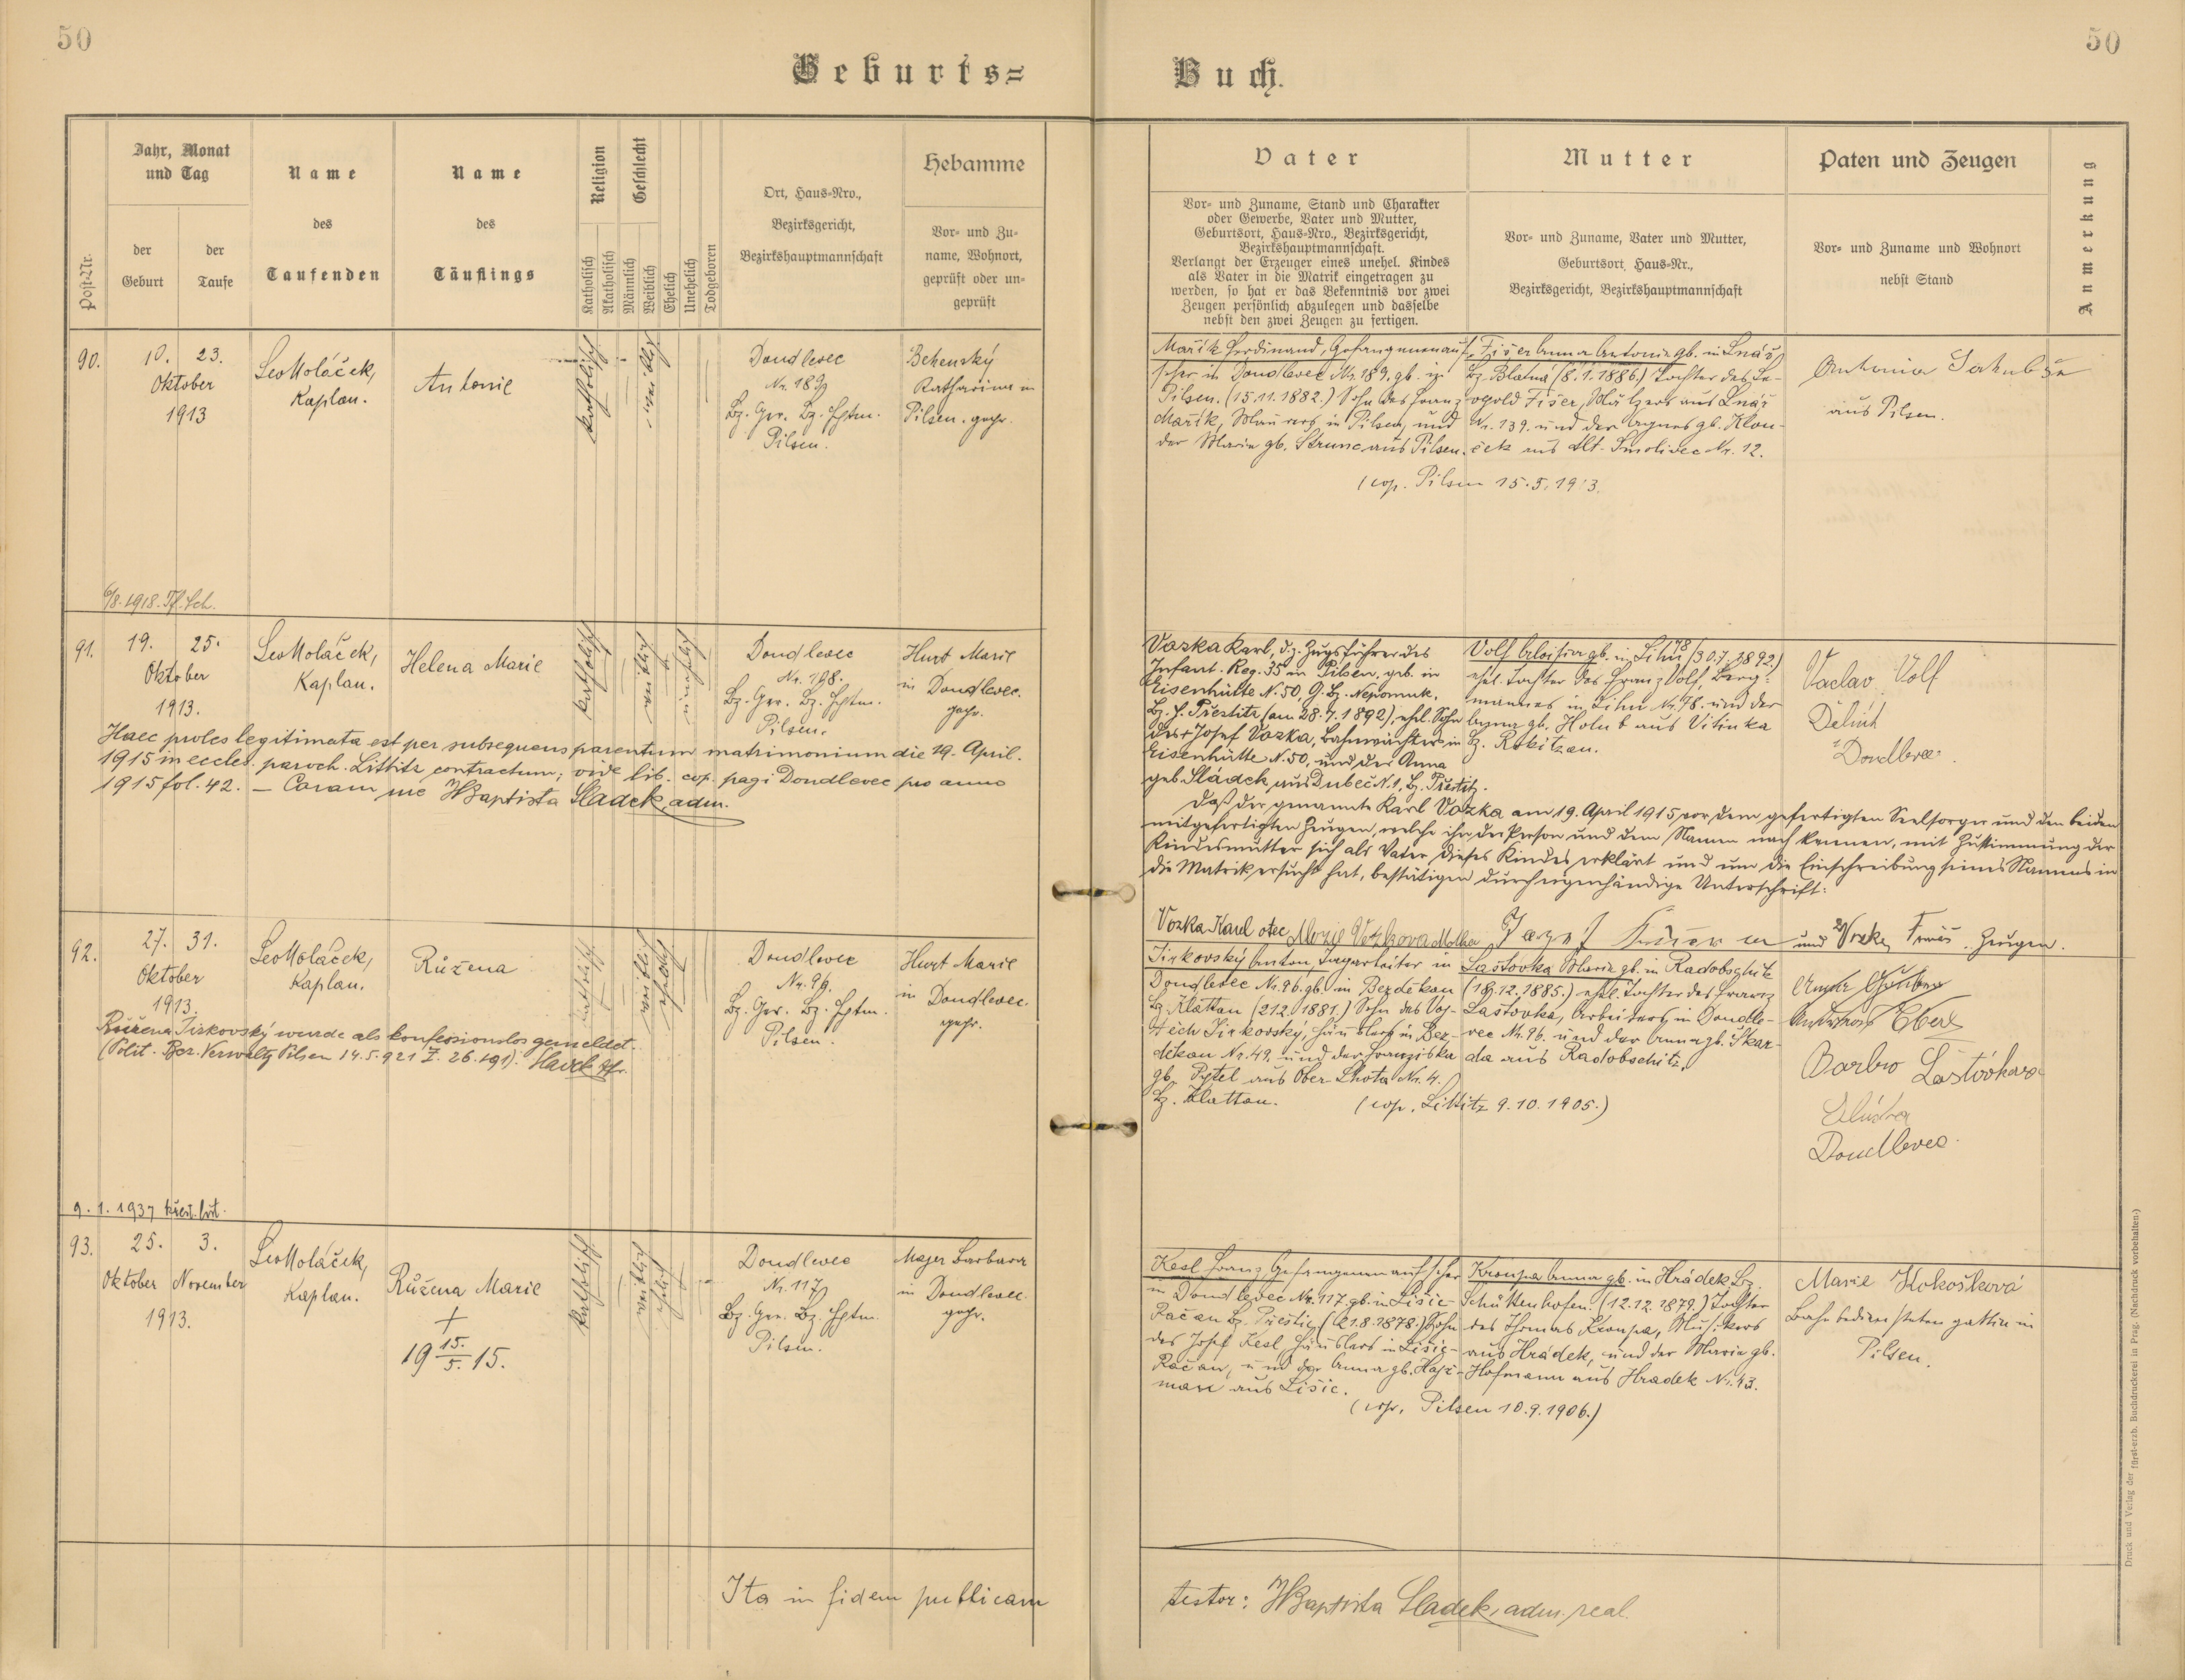 50
50
Geburts=
Buch.
Post-Nr.
Jahr, Monat
und Tag
der
Geburt
der
Taufe
Name
des
Taufenden
Name
des
Täuflings
Religion
Katholisch
Akatholisch
Geschlecht
Männlich
Weiblich
Ehelich
Unehelich
Todgeboren
Ort, Haus=Nro.,
Bezirksgericht,
Bezirkshauptmannschaft
Hebamme
Vor= und Zu=
name, Wohnort,
geprüft oder un=
geprüft
Vater
Vor= und Zuname, Stand und Charakter
oder Gewerbe, Vater und Mutter,
Geburtsort, Haus=Nro., Bezirksgericht,
Bezirkshauptmannschaft.
Verlangt der Erzeuger eines unehel. Kindes
als Vater in die Matrik eingetragen zu
werden, so hat er das Bekenntnis vor zwei
Zeugen persönlich abzulegen und dasselbe
nebst den zwei Zeugen zu fertigen.
Mutter
Vor= und Zuname, Vater und Mutter,
Geburtsort, Haus=Nr.,
Bezirksgericht, Bezirkshauptmannschaft
Paten und Zeugen
Vor= und Zuname und Wohnort
nebst Stand
Anmerkung
90.
10. 23.
Oktober
1913
Leo Moláček,
Kaplan.
Antonie
katholisch
weiblich
Doudlevec
Nr. 189
Bz. Ger. Bz. Hptm.
Pilsen.
Katharina in
Pilsen. gepr.
Mařík Ferdinand, Gefangenenauf=
seher in Doudlevec Nr. 189. gb. in
Pilsen. (15.11.1882.) Sohn des Franz
Mařík, Maurers in Pilsen, und
der Marie gb. Strunc aus Pilsen.
Fišer Anna Antonie gb. in Lnář
Bz. Blatná (8.1.1886.) Tochter des Le-
opold Fišer, Mälzers aus Lnář
Nr. 139. und der Agnes gb. Klou-
ček aus Alt-Smolivec Nr. 12.
(cop. Pilsen 15.5.1913.
Antonia
aus Pilsen.
6/8. 1918. Tf. Sch.
91.
19. 25.
Oktober
1913.
Leo Moláček,
Kaplan.
Helena Marie
katholisch
weiblich
unehelich
Doudlevec
Nr. 198.
Bz. Ger. Bz. Hptm.
Pilsen.
Hurt Marie
in Doudlevec.
gepr.
Haec proles legitimata est per subsequens parentum matrimonium die 19. April.
1915 in eccles. paroch. Littitz contractum; vide lib. cop. pagi Doudlevec pro anno
1915 fol. 42. — Coram me JBaptista Sladek, adm.
Vozka Karl, d. z. Zugsführer des
Infant. Reg. 35 in Pilsen, geb. in
Eisenhütte N. 50, G. Bz. Nepomuk,
Bz. H. Přestitz (am 28.7.1892), ehel. Sohn
des + Josef Vozka, Bahnwächter in
Eisenhütte N. 50, und der Anna
geb. Sládek, aus Dubeč N. 1, Bz. Přestitz.
Volf Aloisia gb. in Lihn 78 (30.7.1892.)
ehel. Tochter des Franz Volf, Berg-
mannes in Lihn Nr. 78. und der
Anna gb. Holub aus Vitinka
Bz. Rokitzan.
Vaclav Volf
Dělník
Doudlevec
Daß der genannte Karl Vozka am 19. April 1915 vor dem gefertigten Seelsorger und den beiden
mitgefertigten Zeugen, welche ihn der Person und dem Namen nach kennen, mit Zustimmung der
Kindesmutter sich als Vater dieses Kindes erklärt und um die Einschreibung seines Namens in
die Matrik ersucht hat, bestätigen durch eigenhändige Unterschrift:
Vozka Karel otec
Vozkova Matka
Josef
und Vozka
Zeugen.
92.
27. 31.
Oktober
1913.
Leo Moláček,
Kaplan.
Růžena
katholisch
weiblich
ehelich
Doudlevec
Nr. 96.
Bz. Ger. Bz. Hptm.
Pilsen.
Hurt Marie
in Doudlevec.
gepr.
Růžena Jirkovský wurde als konfessionslos gemeldet.
(Polit. Bez. Verwaltg Pilsen 14.5.921 Z. 26.191). Havel Pfr.
Jirkovský Anton, Tagarbeiter in
Doudlevec Nr. 96. gb. in Bezděkau
Bz. Klattau (21.2.1881.) Sohn des Voj-
těch Jirkovský, Häuslers in Bez-
děkau Nr. 49. und der Franziska
gb. Pytel aus Ober-Lhota Nr. 4.
Bz. Klattau.
Lašťovka Marie gb. in Radobschitz
(18.12.1885.) ehel. Tochter des Franz
Lašťovka, Arbeiters in Doudle-
vec Nr. 96. und der Anna gb. Škar-
da aus Radobschitz.
(cop. Littitz 9.10.1905.)
Doudlevec.
9. 1. 1937 křest. list.
93.
25. 3.
Oktober November
1913.
Leo Moláček,
Kaplan.
Růžena Marie
+
19 15./5. 15.
katholisch
weiblich
ehelich
Doudlevec
Nr. 117
Bz. Ger. Bz. Hptm.
Pilsen.
Majer Barbara
in Doudlevec
gepr.
Kesl Franz, Gefangenenaufseher
in Doudlevec Nr. 117. gb. in Lišic-
Račan Bz. Přestic, (21.8.1878.) Sohn
des Josef Kesl, Häuslers in Lišic-
Račan, und der Anna gb. Haj-
man aus Lišic.
Kroupa Anna gb. in Hrádek Bz.
Schüttenhofen. (12.12.1879.) Tochter
des Thomas Kroupa, Musikers
aus Hrádek, und der Maria gb.
Hofmann aus Hradek Nr. 43.
(cop. Pilsen 10.9.1906.)
Marie Kokošková
Bahnbediensteten gattin in
Pilsen.
Ita in fidem publicam
testor: JBaptista Sladek, adm. real.
Druck und Verlag der fürst-erzb. Buchdruckerei in Prag. (Nachdruck vorbehalten.)